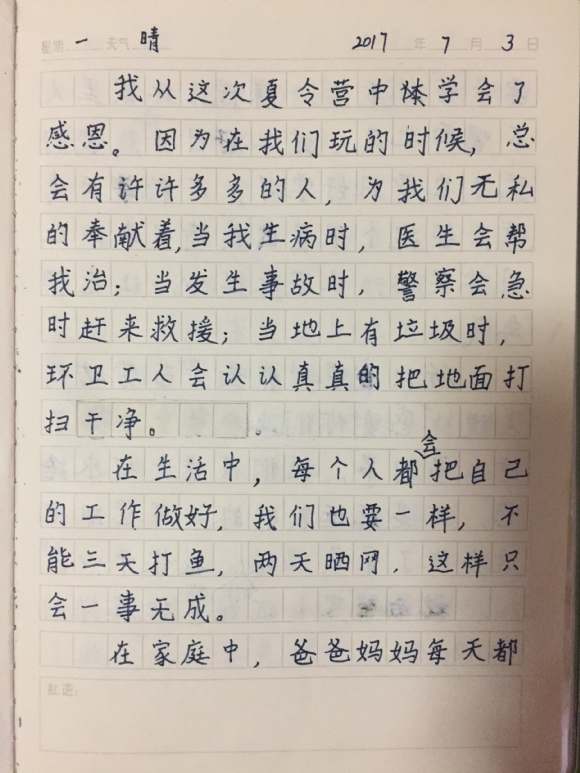 星期 一 天气 晴 2017 年 7 月 3 日
我从这次夏令营中体学会了
感恩。因为在我们玩的时候，总
会有许许多多的人，为我们无私
的奉献着，当我生病时，医生会帮
我治；当发生事故时，警察会急
时赶来救援；当地上有垃圾时，
环卫工人会认认真真的把地面打
扫干净。
在生活中，每个人都会把自己
的工作做好，我们也要一样，不
能三天打鱼，两天晒网，这样只
会一事无成。
在家庭中，爸爸妈妈每天都
批语：